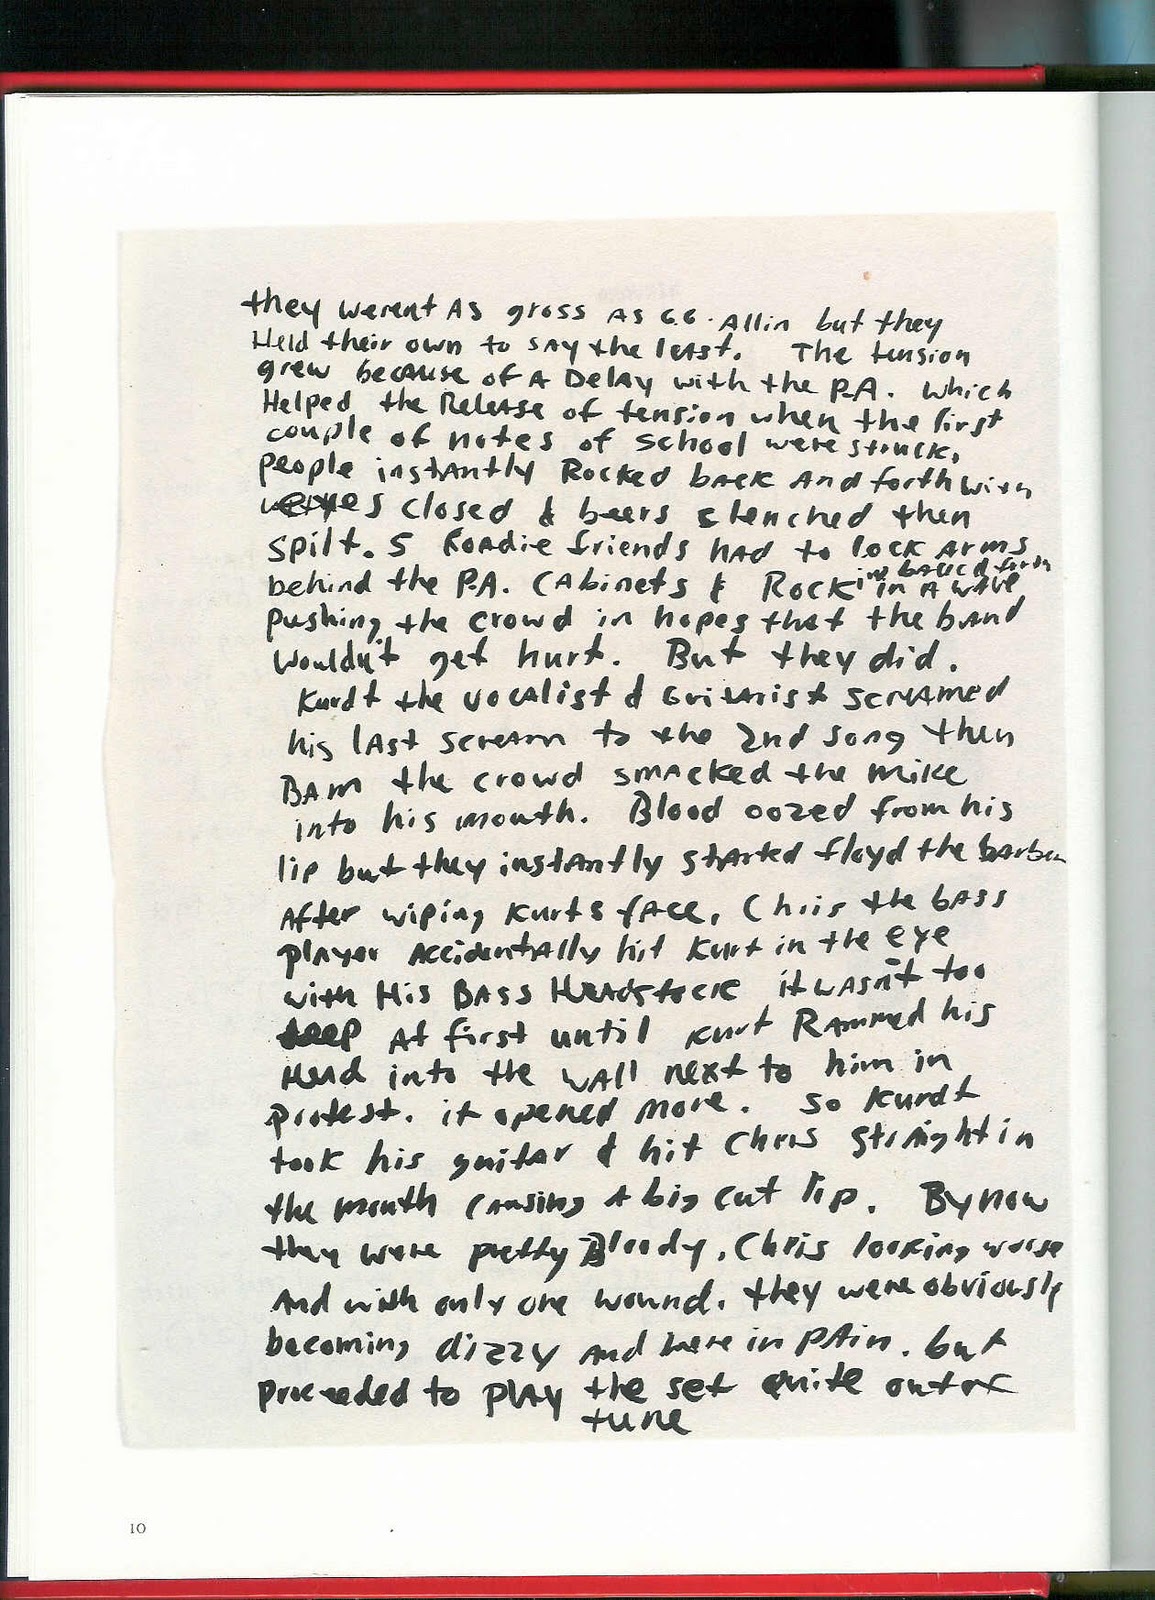 they werent As gross as G.G. Allin but they
Held their own to say the least. The tension
grew because of a Delay with the P.A. which
Helped the Release of tension when the first
couple of notes of School were struck,
people instantly Rocked back And forth with
eyes closed & beers clenched then
spilt. 5 Roadie friends had to lock arms
behind the P.A. Cabinets & Rock in back & forth in a wave
pushing the crowd in hopes that the band
wouldn't get hurt. But they did.
Kurdt the vocalist & Guitarist screamed
his last scream to the 2nd song then
BAM the crowd smacked the mike
into his mouth. Blood oozed from his
lip but they instantly started floyd the barber
After wiping Kurts face, Chris the bass
player Accidentally hit Kurt in the eye
with His BASS Headstock it wasn't too
deep At first until Kurt Rammed his
Head into the wall next to him in
protest. it opened more. So Kurdt
took his guitar & hit Chris straight in
the mouth causing a big cut lip. By now
they were pretty Bloody, Chris looking worse
And with only one wound. they were obviously
becoming dizzy and were in pain. but
proceeded to play the set quite out of
tune
10